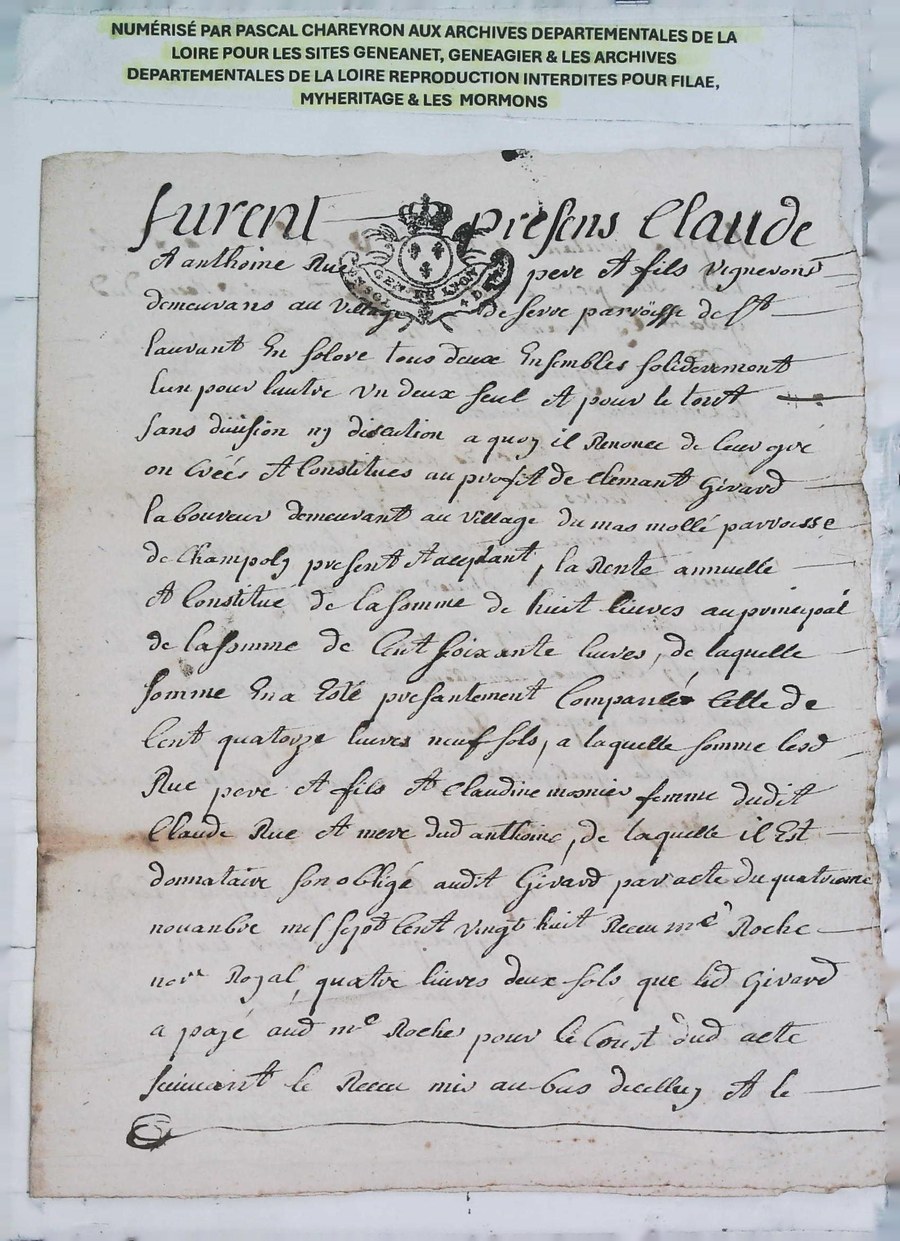 NUMÉRISÉ PAR PASCAL CHAREYRON AUX ARCHIVES DEPARTEMENTALES DE LA
LOIRE POUR LES SITES GENEANET, GENEAGIER & LES ARCHIVES
DEPARTEMENTALES DE LA LOIRE REPRODUCTION INTERDITES POUR FILAE,
MYHERITAGE & LES MORMONS
furent presens Claude
Et anthoine Rue pere Et fils vignerons
GEN. DE LYON
demeurans au village de serre parroisse de St
laurant En solore tous deux Ensembles solideremont
lun pour lautre un deux seul Et pour le tout
sans diuision ny discution a quoy il Renonce de leur gré
on Créés Et Constitues au profit de Clemant Girard
laboureur demeurant au village du mas mollé parroisse
de Champoly present Et aceptant, la Rente annuelle
Et Constitue de la somme de huit liures au principal
de la somme de Cent soixante liures, de laquelle
somme En a Esté presantement Compansés Celle de
Cent quatorze liures neuf sols, a laquelle somme lesd
Rue pere Et fils Et Claudine mosnier femme dudit
Claude Rue Et mere dud anthoine, de laquelle il Est
donnataire son obligé audit Girard par acte du quatrieme
nouanbre mil sept Cent vingt huit Receu me Roche
nore Royal, quatre liures deux sols que led Girard
a payé aud me Roche pour le Coust dud acte
suiuant le Receu mis au bas dicelluy Et le